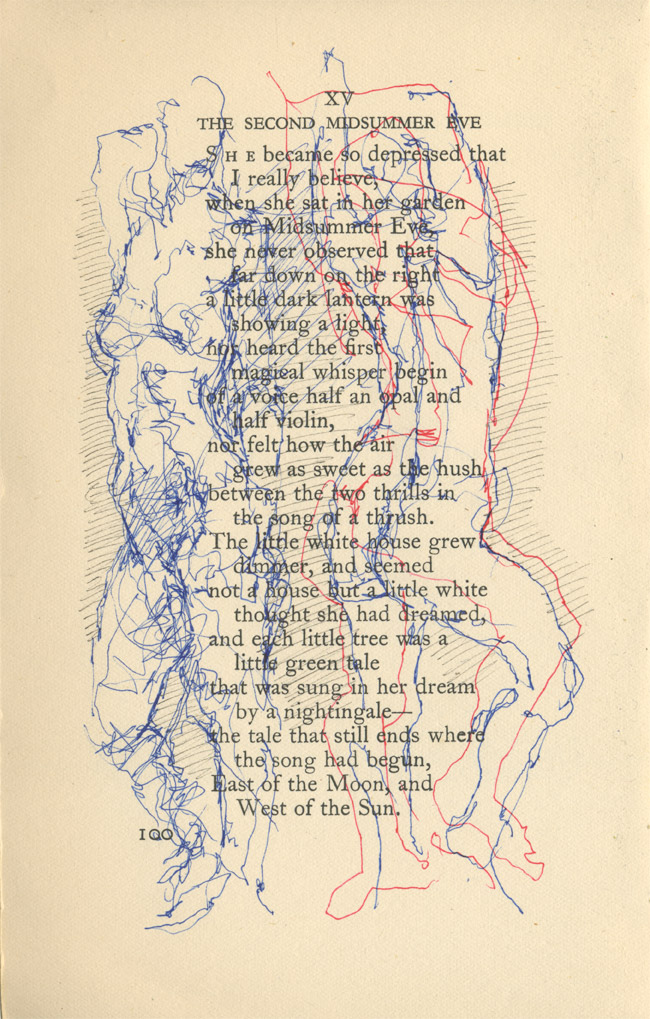 XV
THE SECOND MIDSUMMER EVE
SHE became so depressed that
I really believe,
when she sat in her garden
on Midsummer Eve,
she never observed that,
far down on the right
a little dark lantern was
showing a light,
nor heard the first
magical whisper begin
of a voice half an opal and
half violin,
nor felt how the air
grew as sweet as the hush
between the two thrills in
the song of a thrush.
The little white house grew
dimmer, and seemed
not a house but a little white
thought she had dreamed,
and each little tree was a
little green tale
that was sung in her dream
by a nightingale—
the tale that still ends where
the song had begun,
East of the Moon, and
West of the Sun.
100